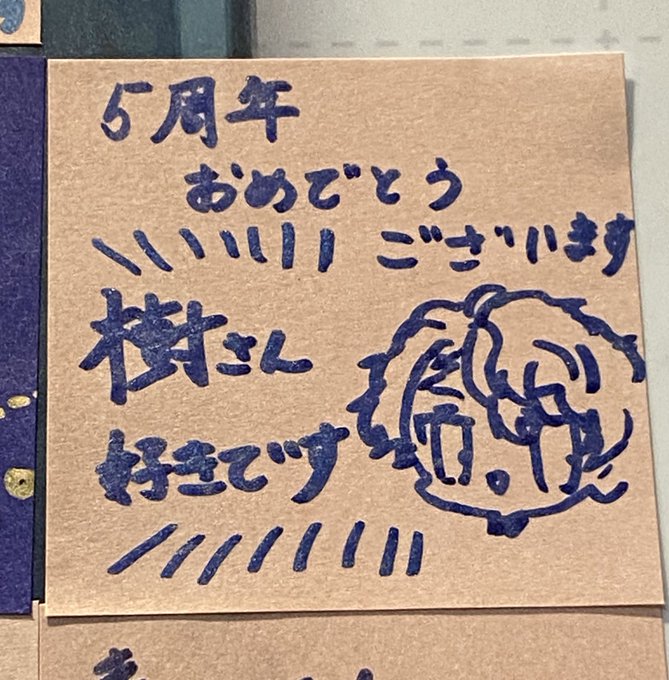 5周年
おめでとう
ございます
樹さん
好きです